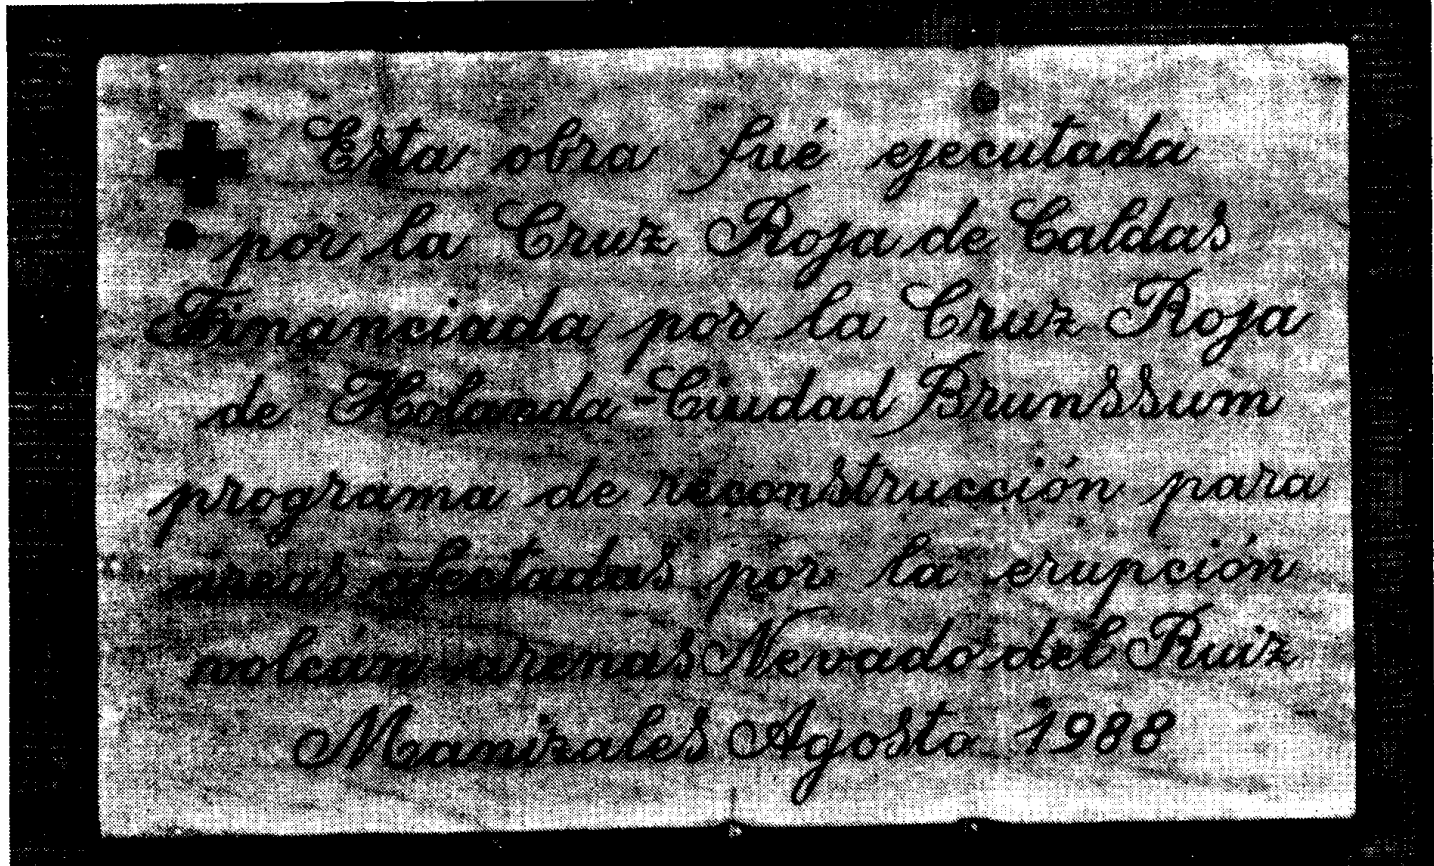 Esta obra fué ejecutada
por la Cruz Roja de Caldas
Financiada por la Cruz Roja
de Holanda-Ciudad Brunssum
programa de reconstrucción para
areas afectadas por la erupción
volcán arenas Nevado del Ruiz
Manizales Agosto 1988